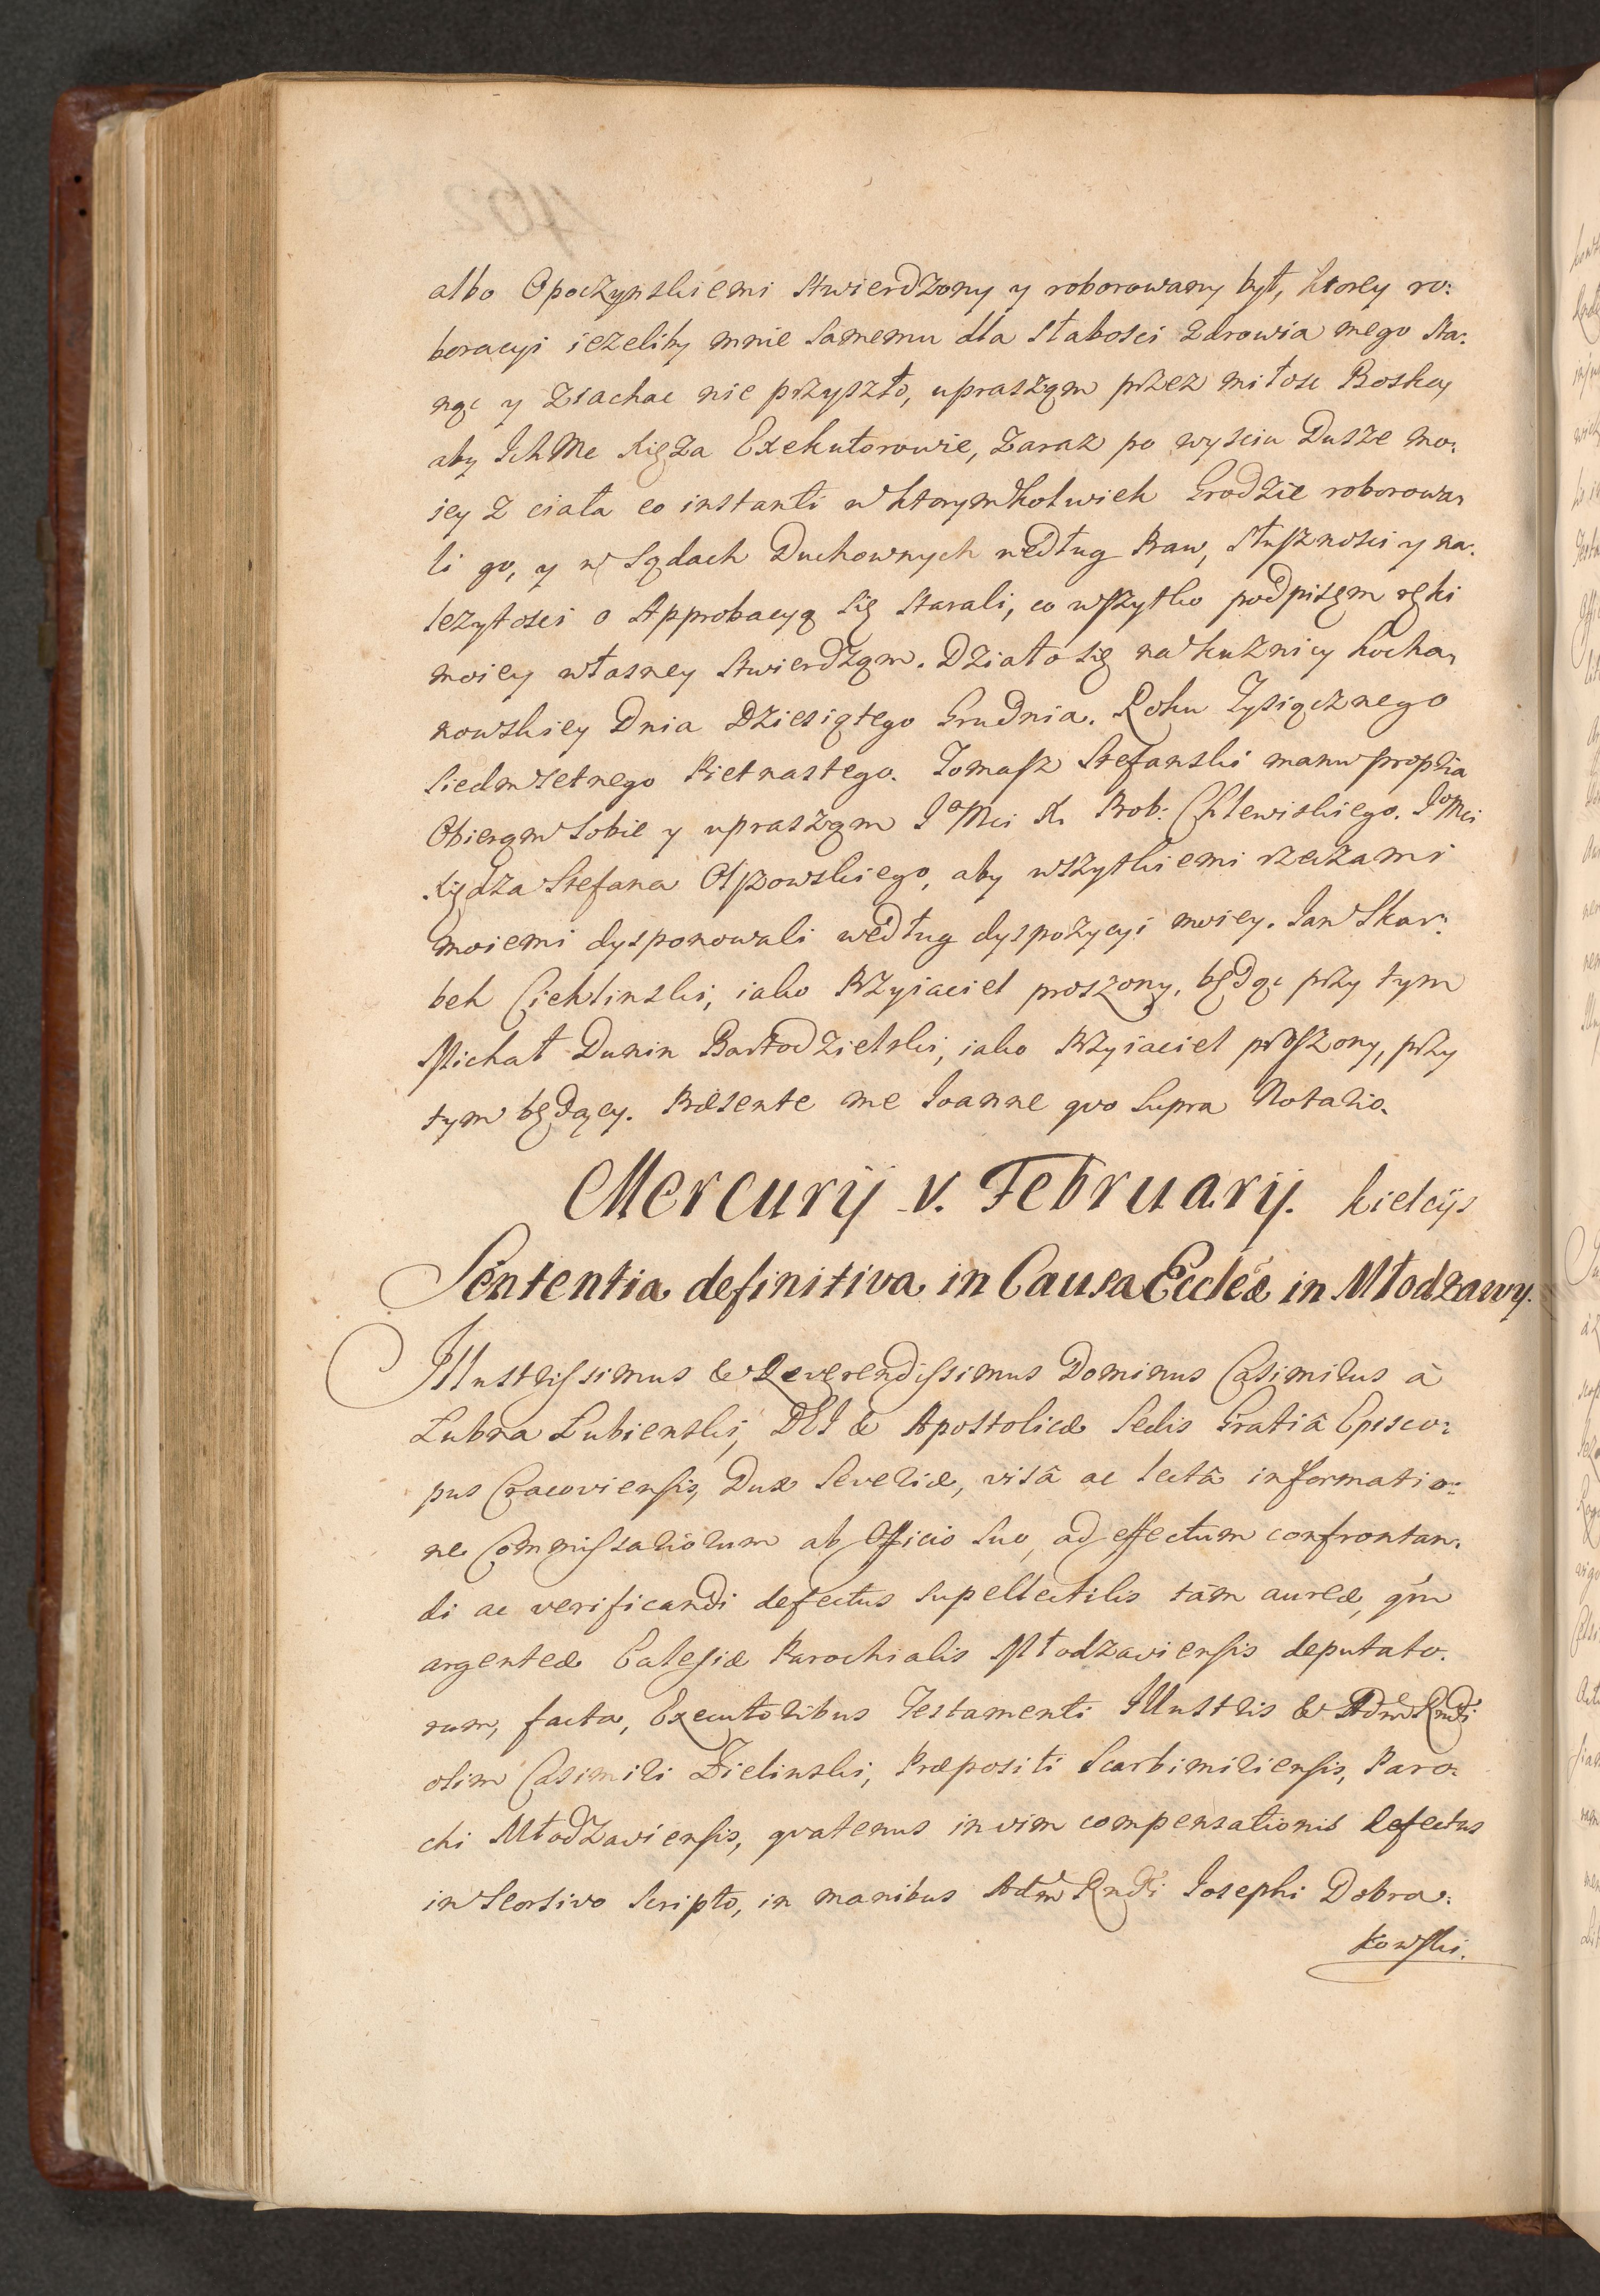 albo Opoczynskiemi stwierdzony y roborowany był, ktorey ro:
boracyi iezeliby mnie samemu dla słabosci zdrowia mego sta:
nąc y ziachac nie przyszło, uprasząm przez miłosc Boską
aby IchMc Xięza Exekutorowie, zaraz po wysciu Dusze mo:
iey z ciała eo instanti w ktorymkolwiek Grodzie roborowa,
li go, y w Sądach Duchownych według Praw, słusznosci y na:
lezytosci o Approbacyą się starali, co wszytko podpisęm ręki
moiey własney stwierdząm. Działo się na Kuznicy Kocha,
nowskiey Dnia Dziesiątego Grudnia. Roku Tysiącznego
Siedmsetnego Pietnastego. Tomasz Stefanski manu propria
Obierąm sobie y uprasząm JoMci X. Prob: Chlewiskiego. JoMci
Xiędza Stefana Olszowskiego, aby wszytkiemi rzeczami
moiemi dysponowali według dyspozycyi moiey. Jan Skar:
bek Ciehlinski, iako Przyiaciel proszony, będąc przy tym
Michał Dunin Bartodzielski, iako Przyiaciel proszony, przy
tym będący. Præsente me Joanne quo supra Notario.
Mercurij v. Februarij. Kielcijs
Sententia definitiva in Causa Ecclæ in Młodzawy.
Illustrissimus & Reverendissimus Dominus Casimirus à
Lubna Lubienski, DEI & Apostolicæ Sedis Gratiâ Episco:
pus Cracoviensis, Dux Severiæ, visâ ac lectâ informatio:
ne Commissariorum ab Officio suo, ad effectum confrontan:
di ac verificandi defectus supellectilis tàm aureæ, qm
argenteæ Ecclesiæ Parochialis Młodzaviensis deputato.
rum, facta, Executoribus Testamenti Illustris & Adm Rndi
olim Casimiri Zielinski, Præpositi Scarbimiriensis, Paro:
chi Młodzaviensis, quatenus in vim compensationis defectus
in seorsivo scripto, in manibus Adm Rndi Josephi Dobra:
kowski.